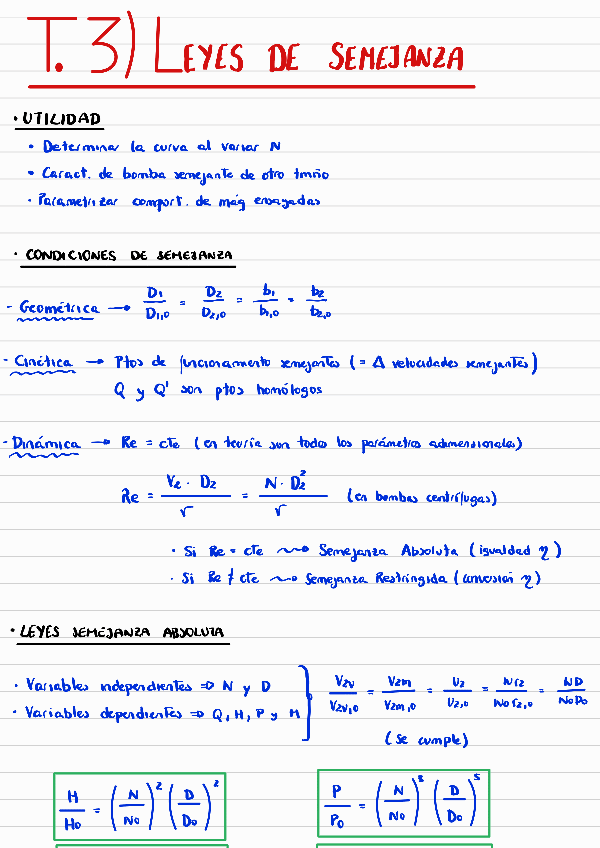 T. 3) LEYES DE SEMEJANZA
· UTILIDAD
• Determinar la curva al variar N
• Caract. de bomba semejante de otro tmño
• Parametrizar comport. de máq ensayadas
· CONDICIONES DE SEMEJANZA
- Geométrica → D1/D1,0 = D2/D2,0 = b1/b1,0 = b2/b2,0
- Cinética → Ptos de funcionamiento semejantes ( = Δ velocidades semejantes)
Q y Q' son ptos homólogos
- Dinámica → Re = cte (en teoría son todos los parámetros adimensionales)
Re = Ve · D2 / r = N · D2² / r (en bombas centrífugas)
· Si Re = cte ⇝ Semejanza Absoluta (igualdad η)
· Si Re ≠ cte ⇝ Semejanza Restringida (conversión η)
· LEYES SEMEJANZA ABSOLUTA
· Variables independientes ⇒ N y D
· Variables dependientes ⇒ Q, H, P y M
V2u/V2u,0 = V2m/V2m,0 = U2/U2,0 = Nr2/N0r2,0 = ND/N0D0
(Se cumple)
H/H0 = (N/N0)² (D/D0)²
P/P0 = (N/N0)³ (D/D0)⁵